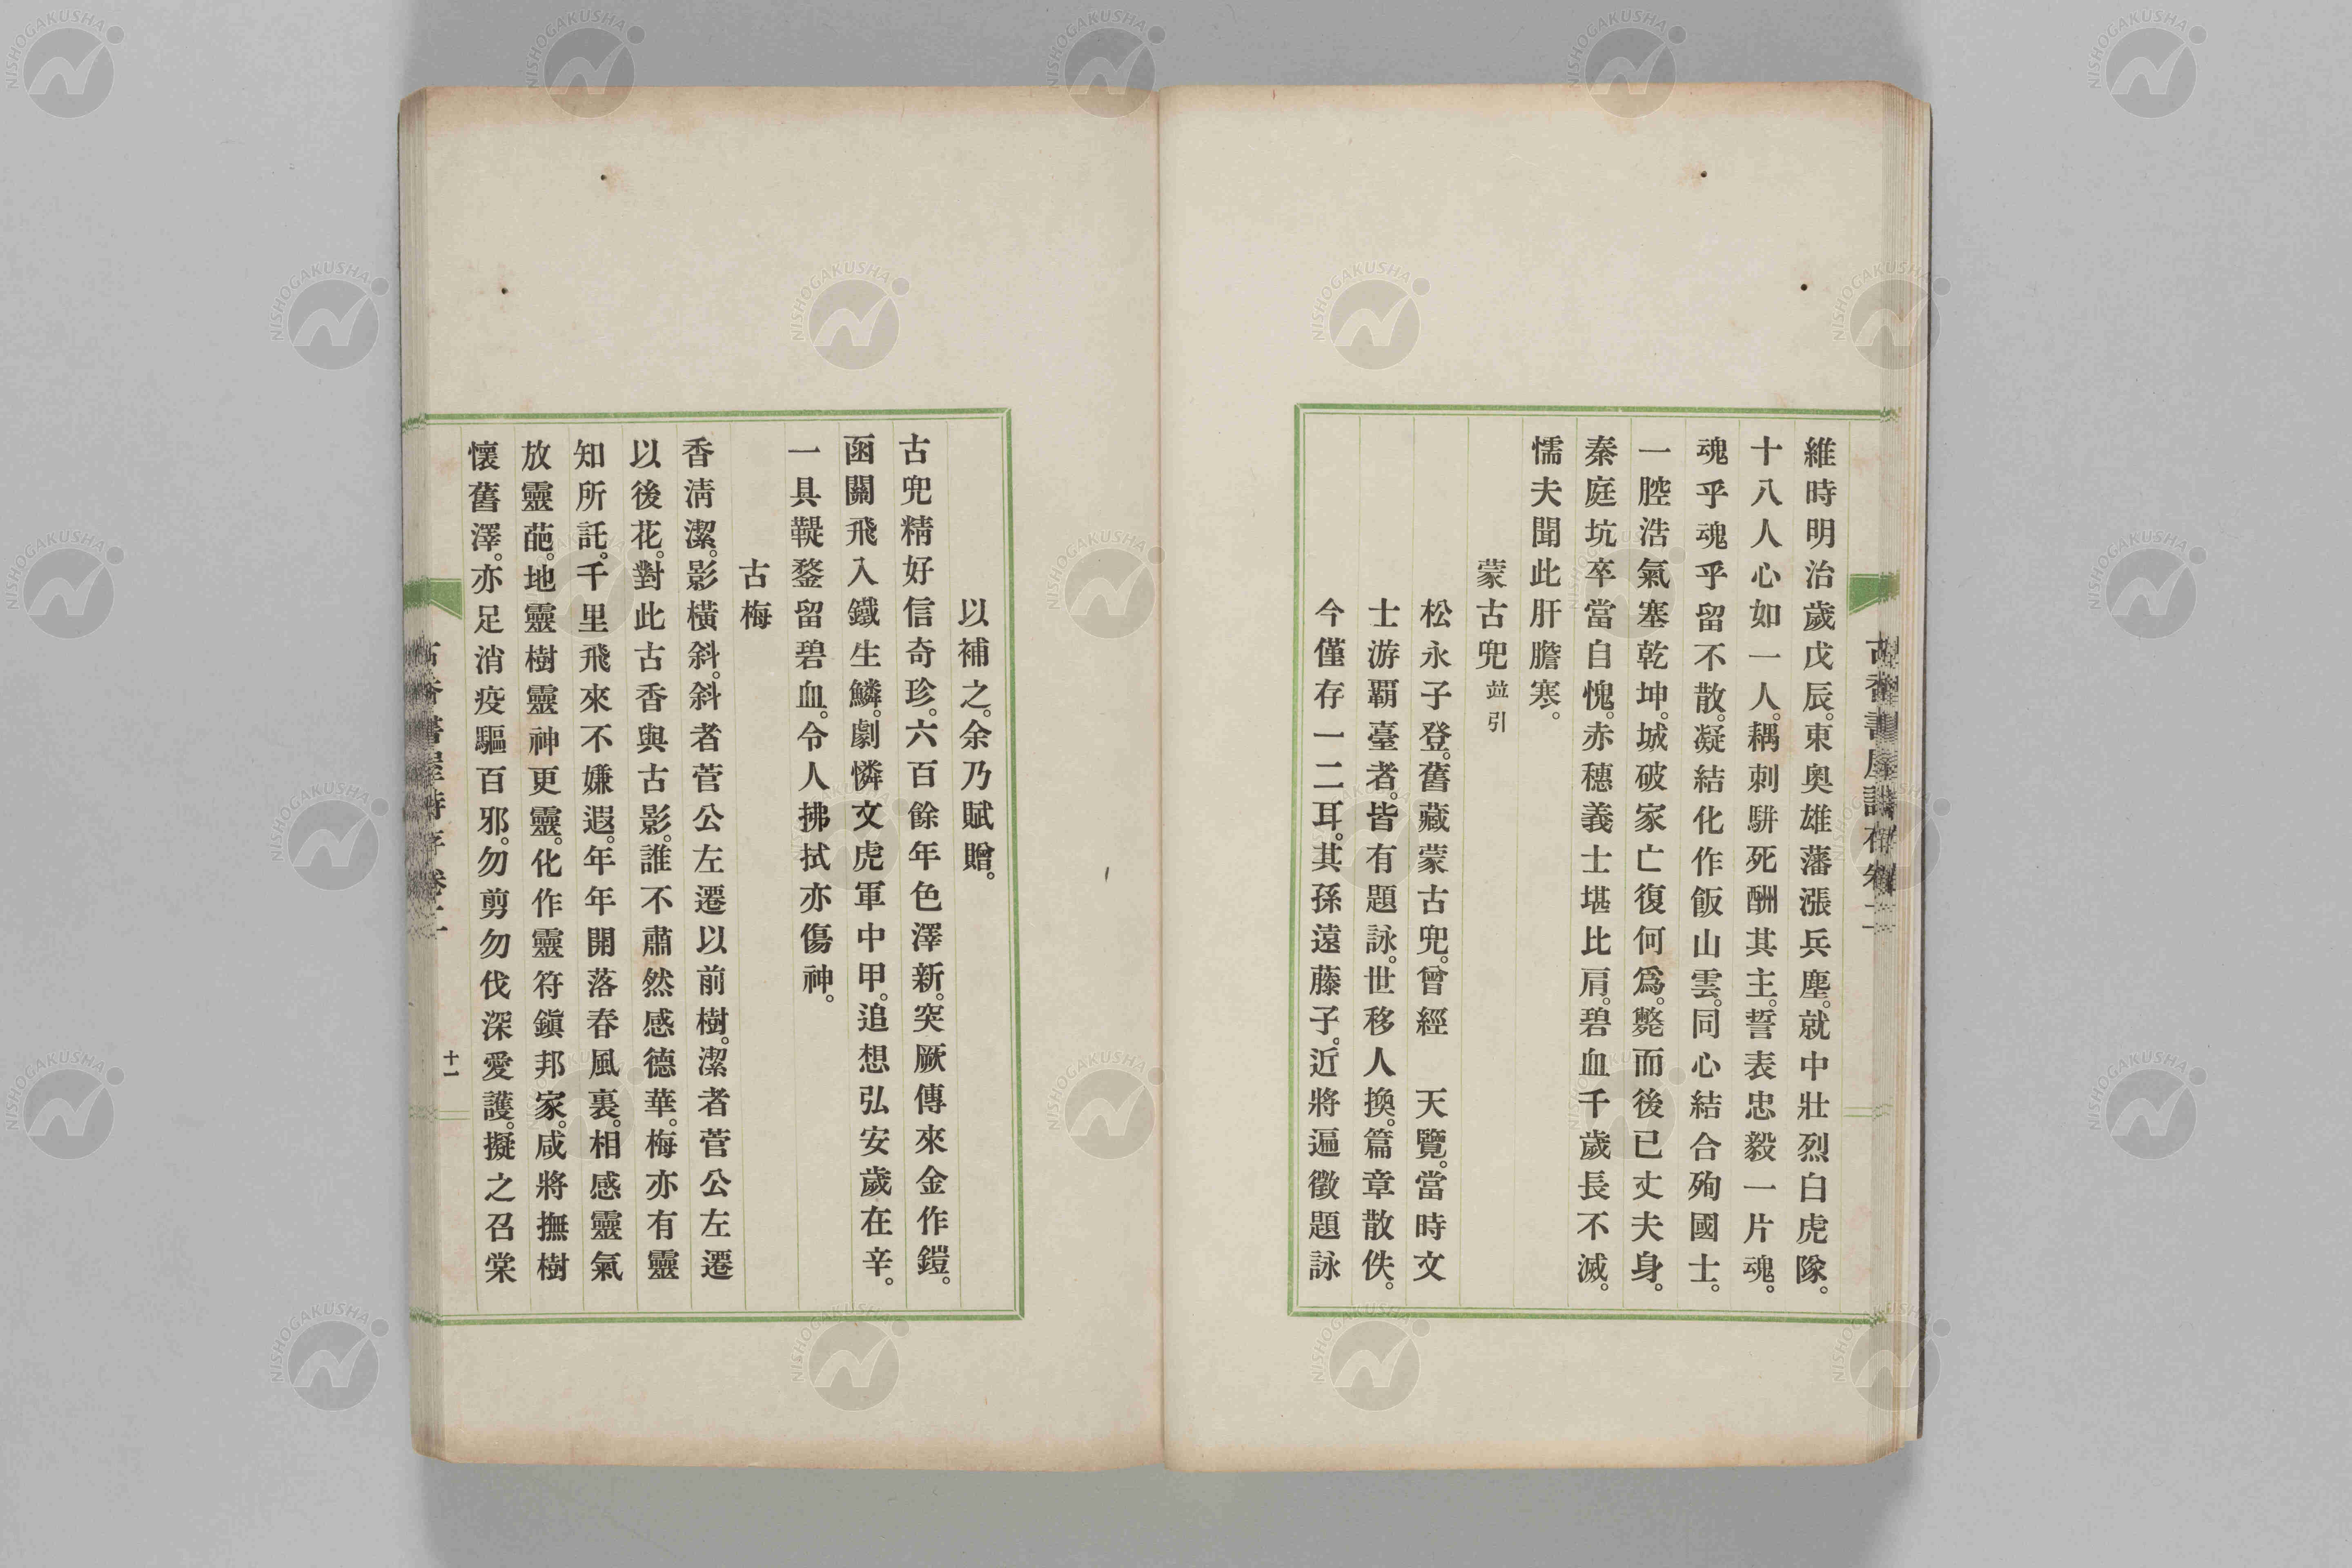 維時明治歲戊辰。東奥雄藩漲兵塵。就中壯烈白虎隊。
十八人心如一人。耦刺駢死酬其主。誓表忠毅一片魂。
魂乎魂乎留不散。凝結化作飯山雲。同心結合殉國士。
一腔浩氣塞乾坤。城破家亡復何爲。斃而後已丈夫身。
秦庭坑卒當自愧。赤穗義士堪比肩。碧血千歲長不滅。
懦夫聞此肝膽寒。
蒙古兜 並引
松永子登。舊藏蒙古兜。曾經 天覽。當時文
士游覇臺者。皆有題詠。世移人換。篇章散佚。
今僅存一二耳。其孫遠藤子。近將遍徵題詠
以補之。余乃賦贈。
古兜精好信奇珍。六百餘年色澤新。突厥傳來金作鎧。
函關飛入鐵生鱗。劇憐文虎軍中甲。追想弘安歲在辛。
一具鞮鍪留碧血。令人拂拭亦傷神。
古梅
香淸潔。影橫斜。斜者菅公左遷以前樹。潔者菅公左遷
以後花。對此古香與古影。誰不肅然感德華。梅亦有靈
知所託。千里飛來不嫌遐。年年開落春風裏。相感靈氣
放靈葩。地靈樹靈神更靈。化作靈符鎭邦家。咸將撫樹
懷舊澤。亦足消疫驅百邪。勿剪勿伐深愛護。擬之召棠
十一
NISHOGAKUSHA